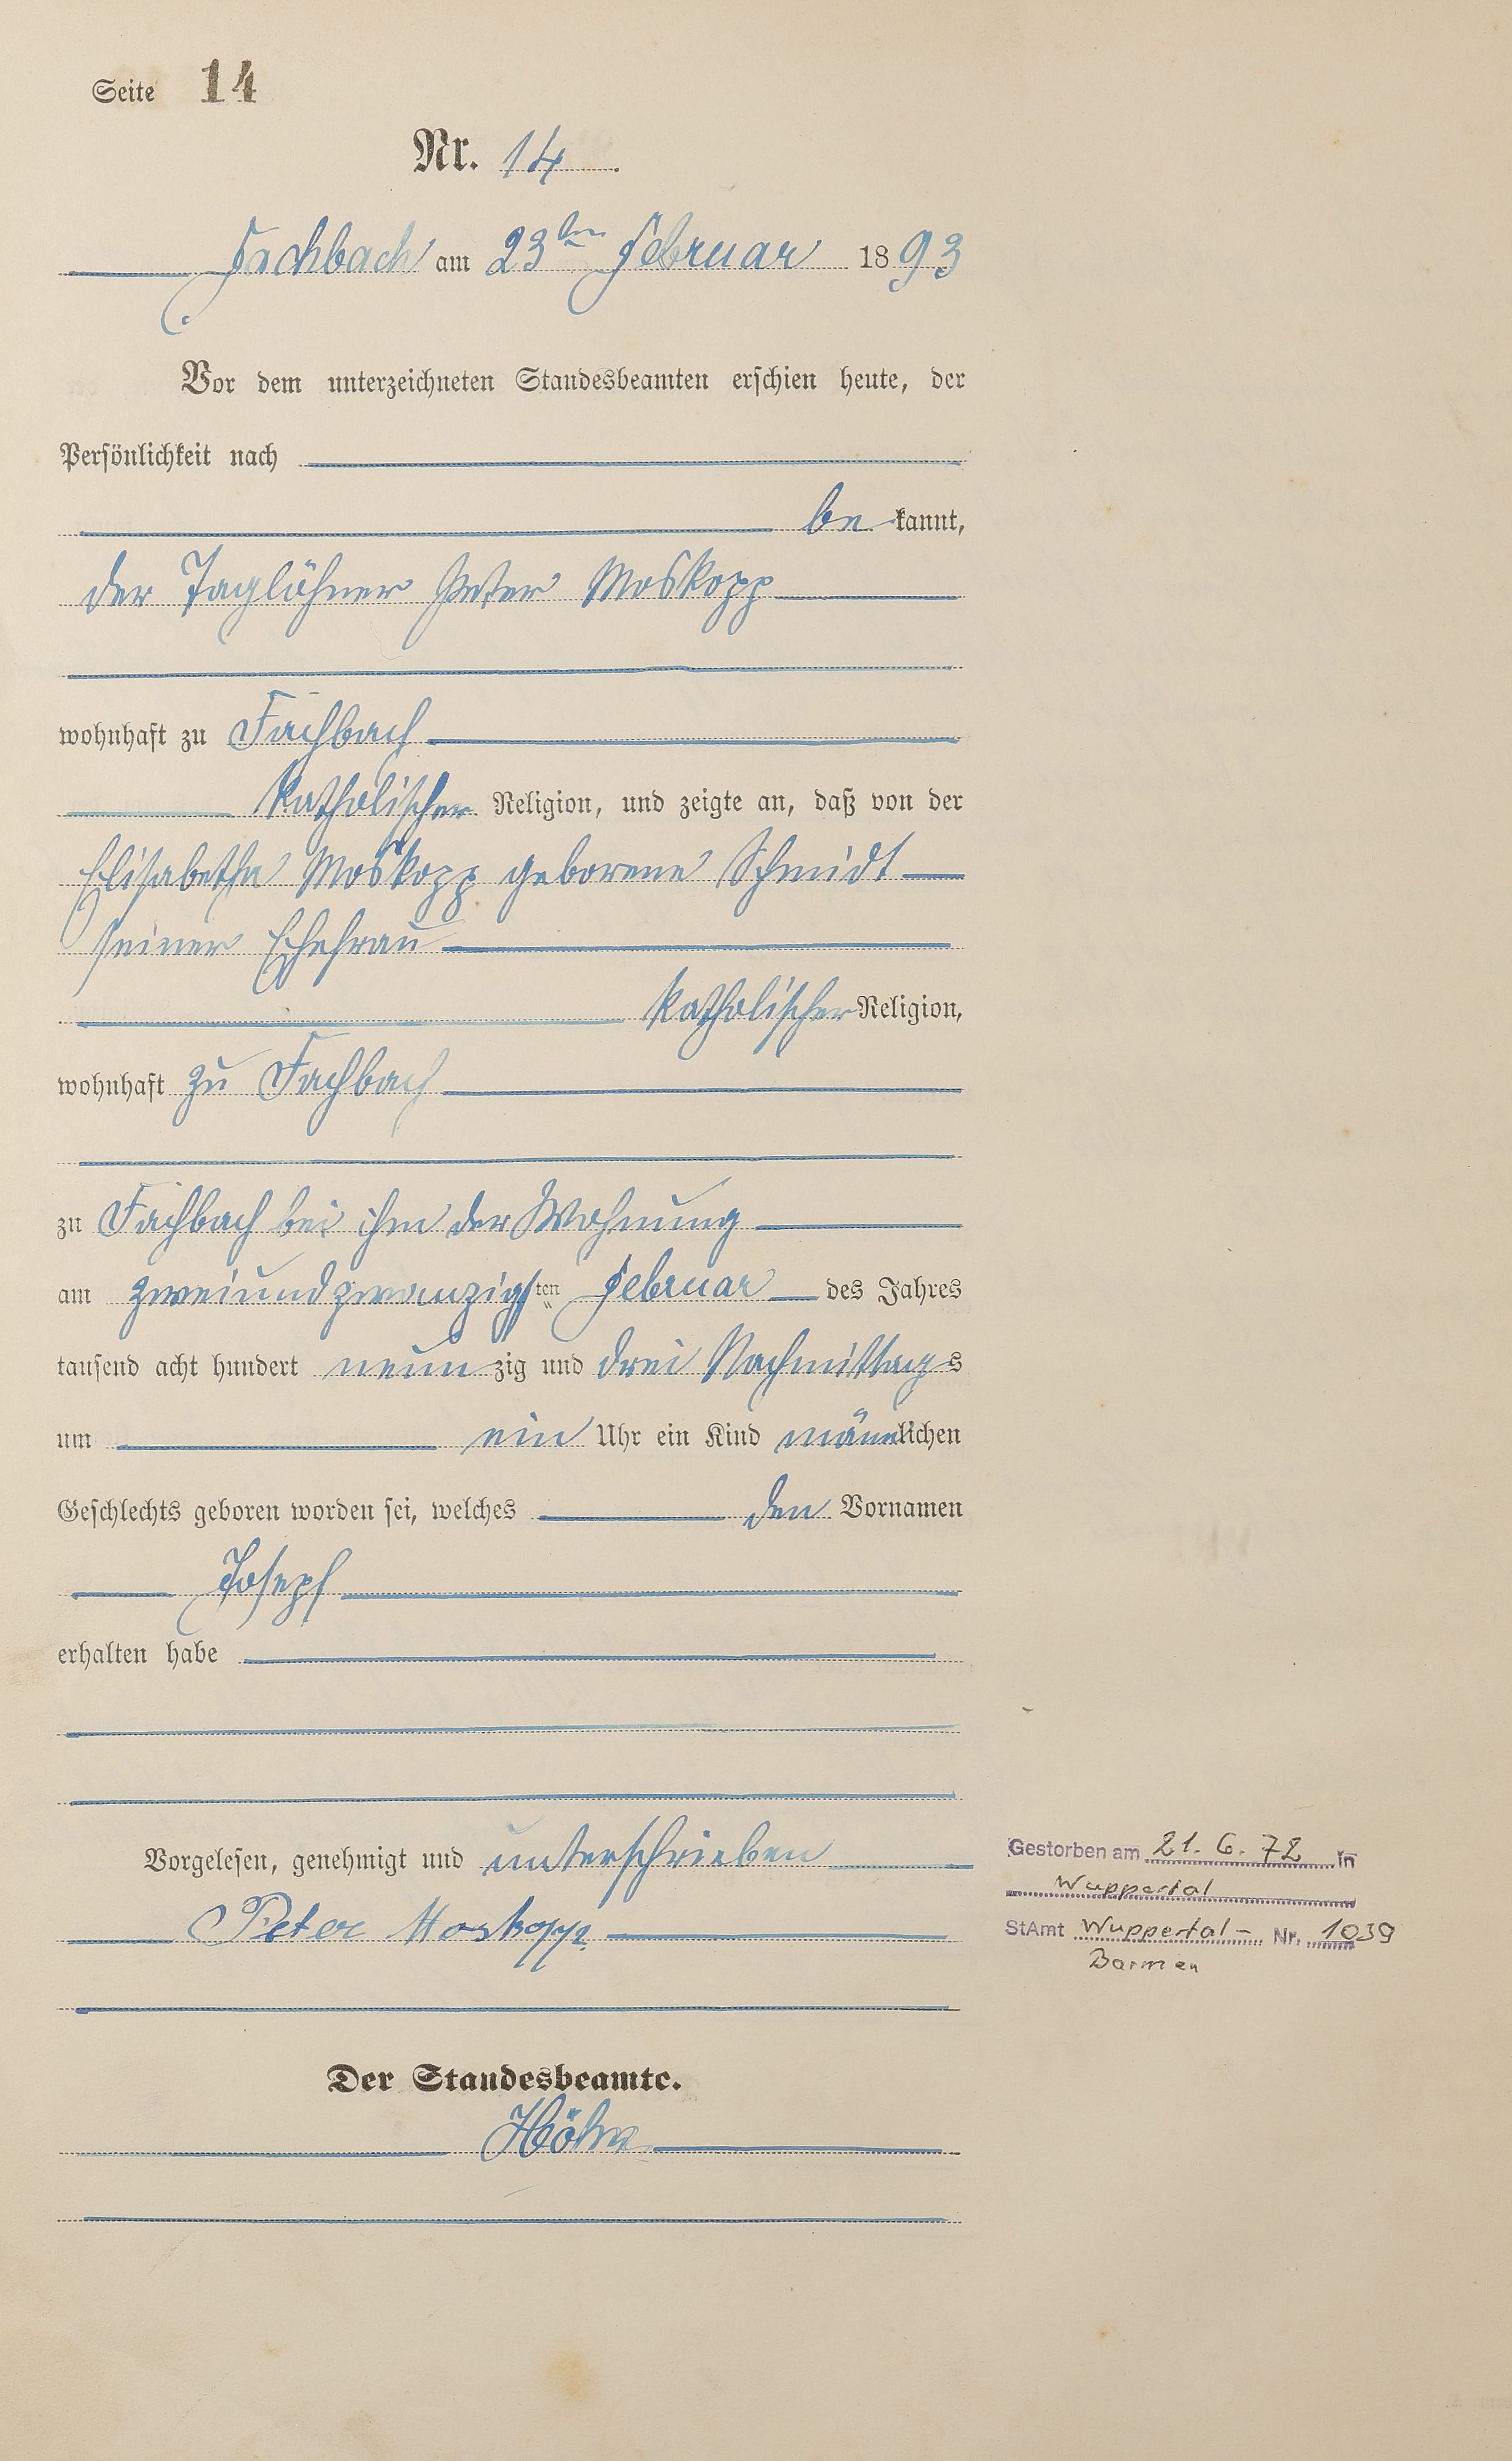 Seite 14
Nr. 14.
Fachbach am 23ten Februar 1893
Vor dem unterzeichneten Standesbeamten erschien heute, der
Persönlichkeit nach
be kannt,
der Taglöhner Peter Moskopp
wohnhaft zu Fachbach
katholischer Religion, und zeigte an, daß von der
Elisabetha Moskopp geborene Schmidt
seiner Ehefrau
katholischer Religion,
wohnhaft zu Fachbach
zu Fachbach bei ihm der Wohnung
am zweiundzwanzigsten Februar des Jahres
tausend acht hundert neunzig und drei Nachmittags
um ein Uhr ein Kind männlichen
Geschlechts geboren worden sei, welches den Vornamen
Joseph
erhalten habe
Vorgelesen, genehmigt und unterschrieben
Peter Moskopp
Der Standesbeamte.
Gestorben am 21. 6. 72 in
Wuppertal
StAmt Wuppertal- Nr. 1039
Barmen